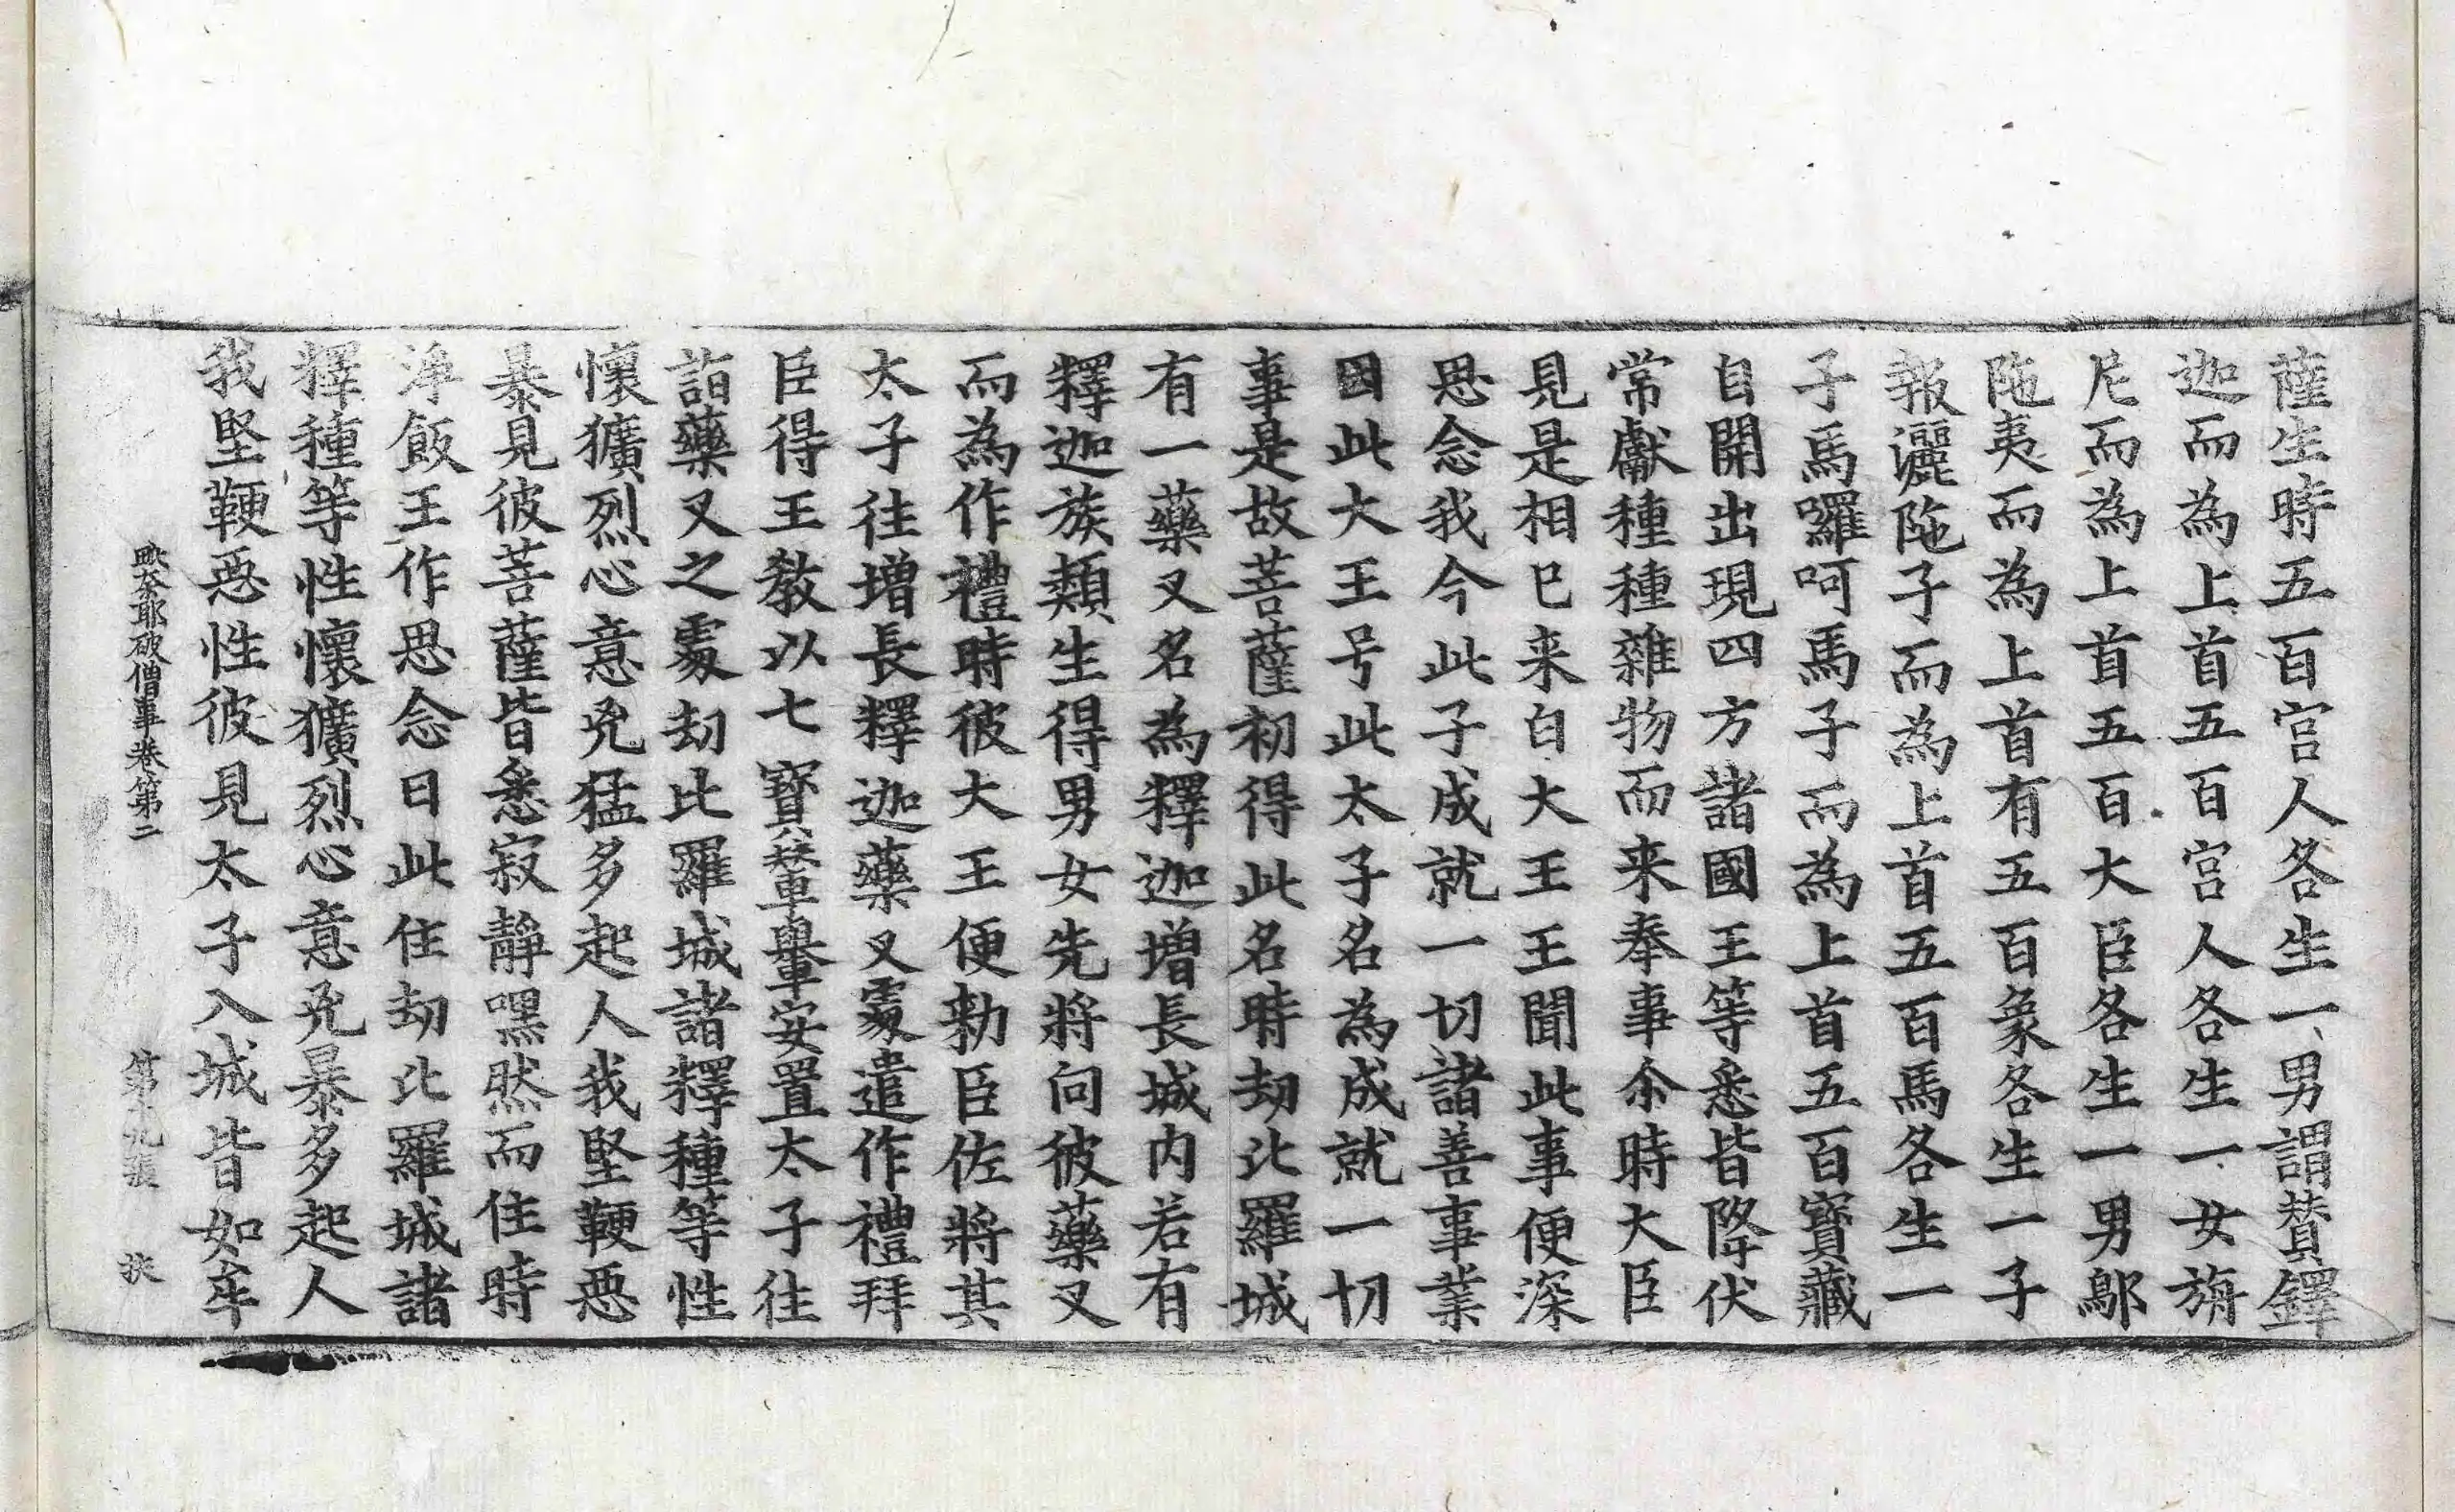 薩生時五百宮人各生一男謂賛鐸
迦而為上首五百宮人各生一女旃
尼而為上首五百大臣各生一男鄔
陁夷而為上首有五百象各生一子
報灑陁子而為上首五百馬各生一
子馬囉呵馬子而為上首五百寶藏
自開出現四方諸國王等悉皆降伏
常獻種種雜物而来奉事尒時大臣
見是相已来白大王王聞此事便深
思念我今此子成就一切諸善事業
因此大王号此太子名為成就一切
事是故菩薩初得此名時劫比羅城
有一藥叉名為釋迦增長城内若有
釋迦族類生得男女先將向彼藥叉
而為作禮時彼大王便勑臣佐將其
太子往增長釋迦藥叉處遣作禮拜
臣得王教以七寶輦轝安置太子往
詣藥叉之處劫比羅城諸釋種等性
懷獷烈心意兇猛多起人我堅鞕惡
暴見彼菩薩皆悉寂靜嘿然而住時
淨飯王作思念曰此住劫比羅城諸
釋種等性懷獷烈心意兇暴多起人
我堅鞕惡性彼見太子入城皆如牟
奈耶破僧事卷第二 第十九張